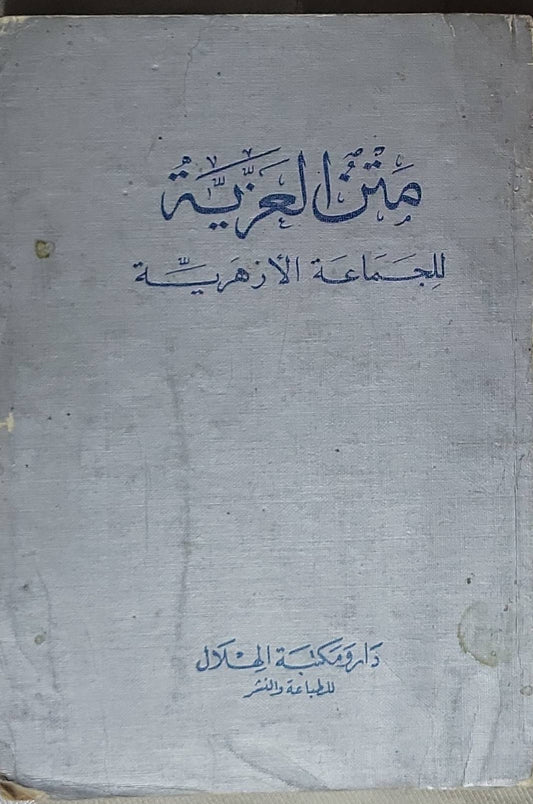 مَتْنُ العَزِّيَّةُ
للِجَمَاعَة الأزهَريَّة
دَار وَمَكتبَة الهِلَال
للطباعة والنشر